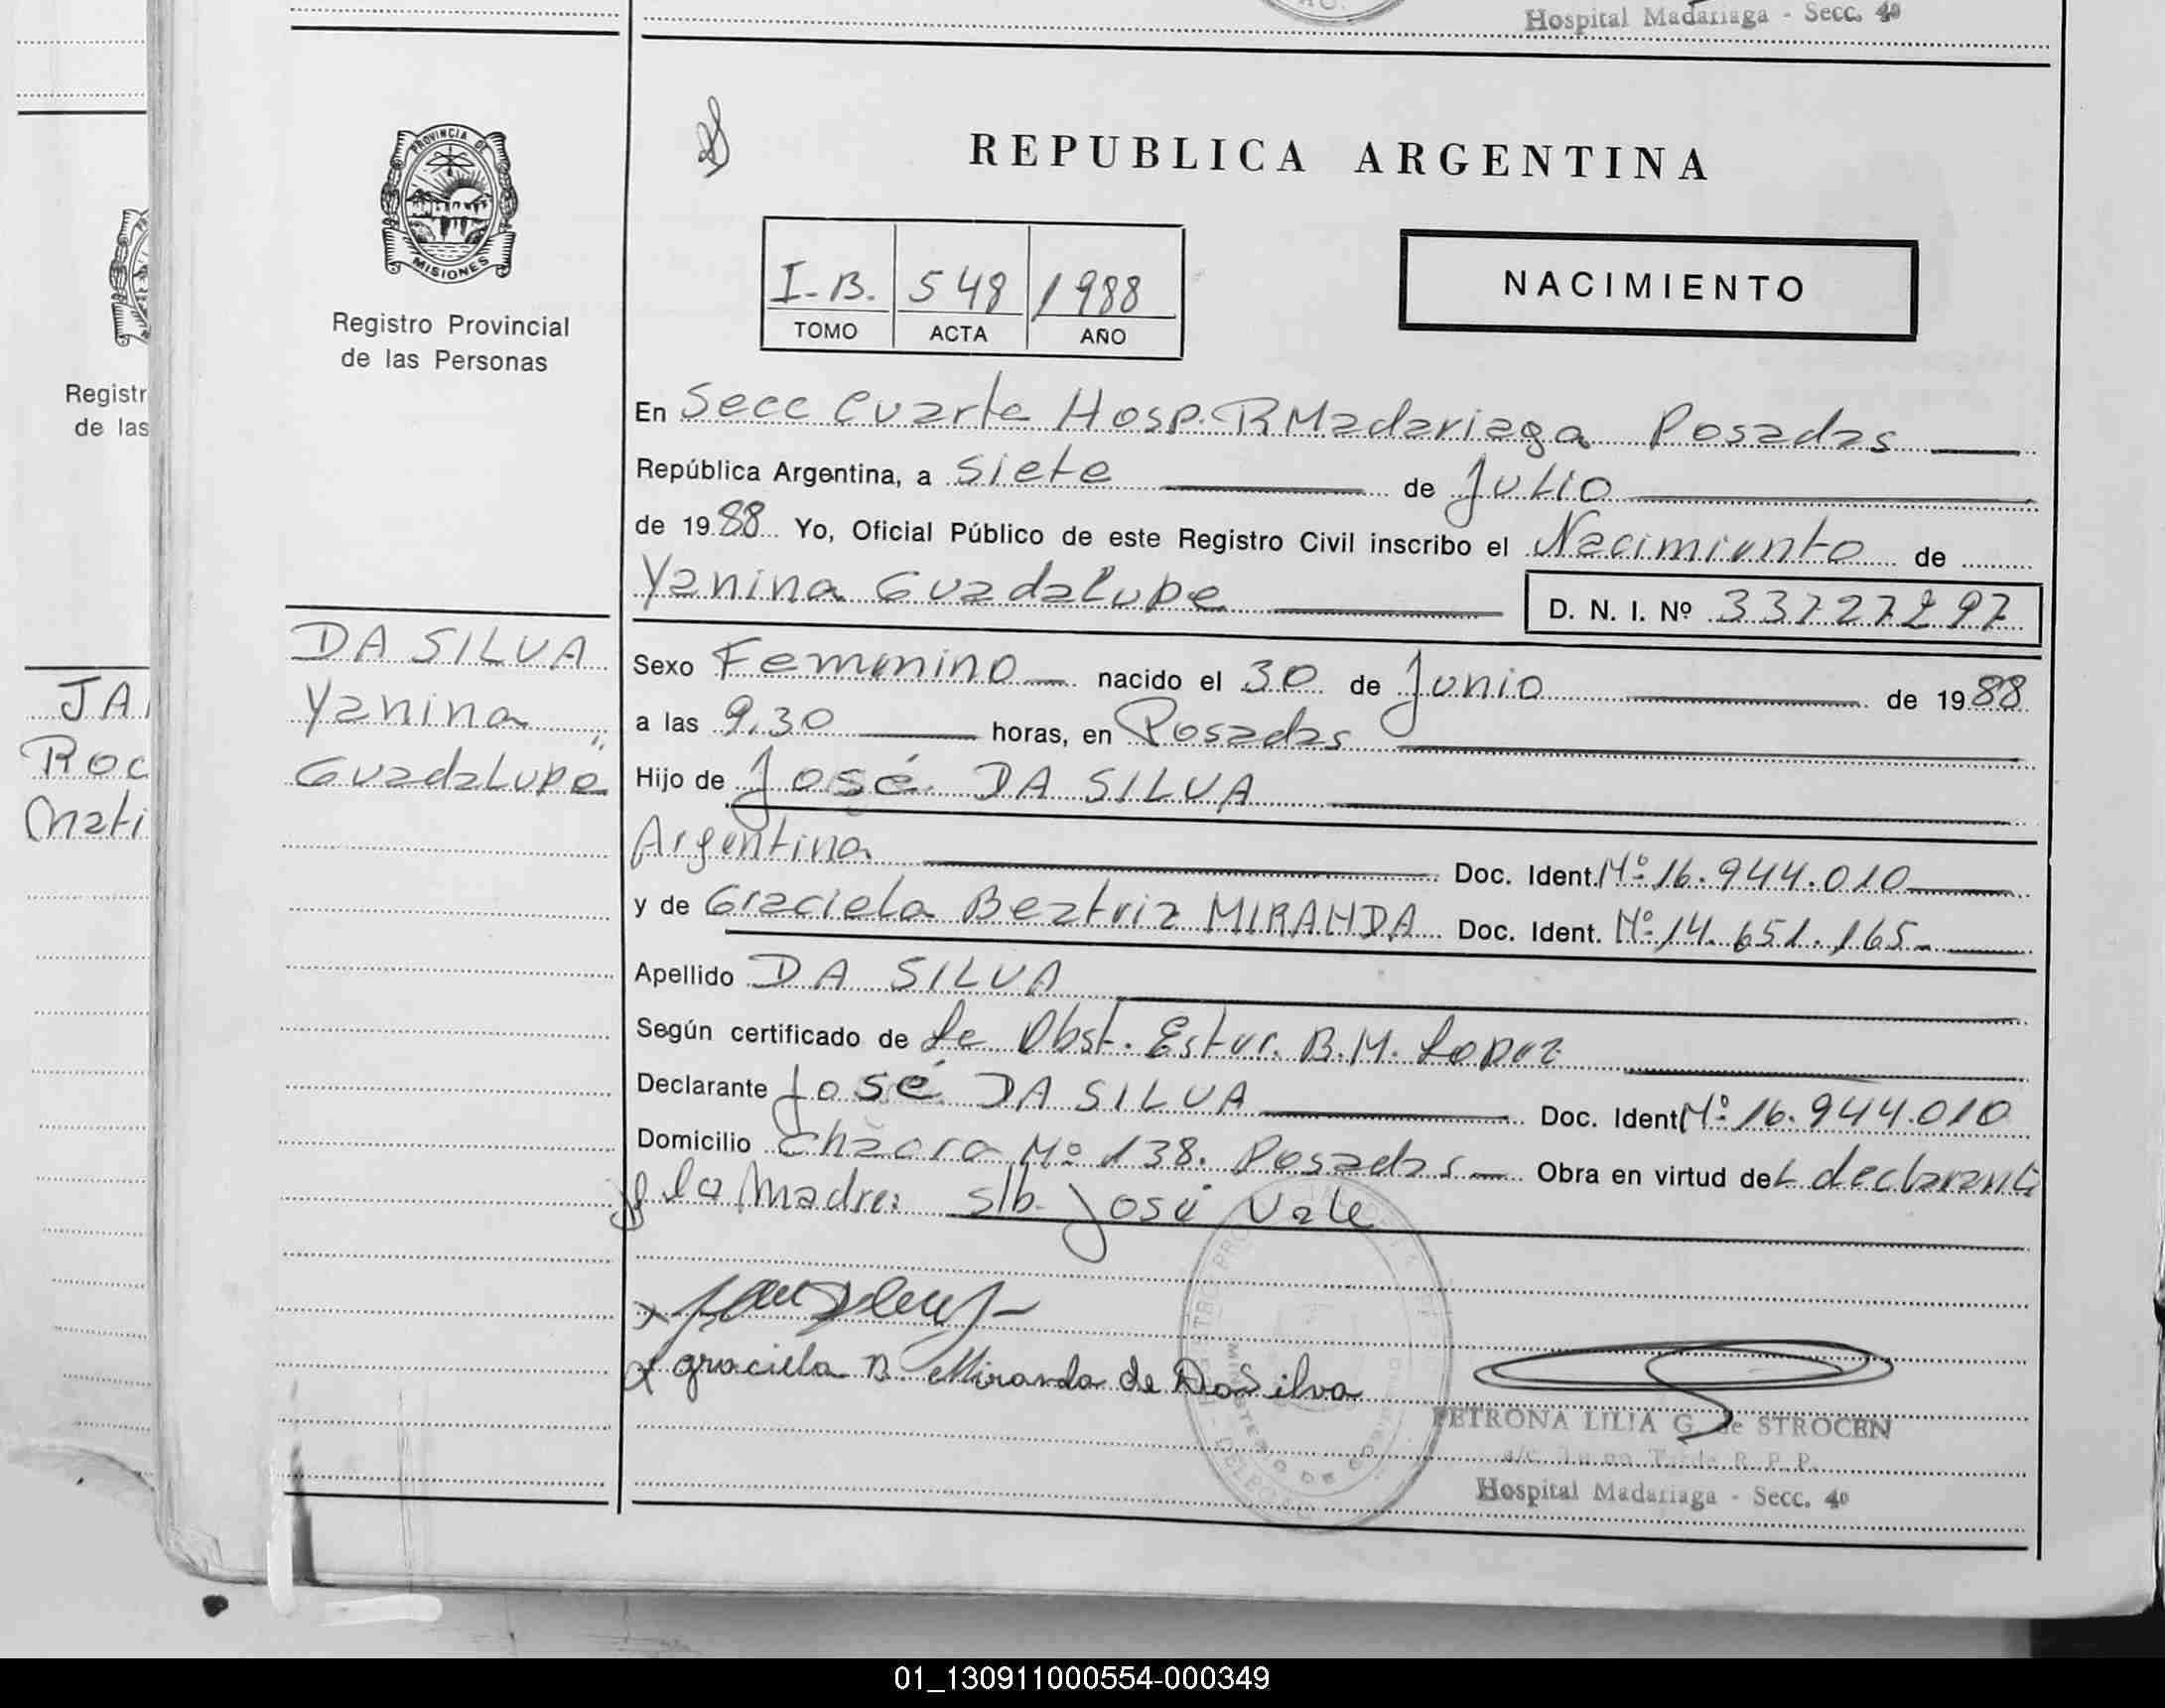 Hospital Madariaga - Secc. 4º
PROVINCIA DE
MISIONES
Registro Provincial
de las Personas
Registr
de las
JA
Roc
Mati
DA SILVA
Yanina
Guadalupe
REPUBLICA ARGENTINA
I-B. 548 1988
TOMO ACTA AÑO
NACIMIENTO
En Secc Cuarta Hosp. R Madariaga Posadas
República Argentina, a siete de Julio
de 1988 Yo, Oficial Público de este Registro Civil inscribo el Nacimiento de
Yanina Guadalupe D. N. I. Nº 33727297
Sexo Femenino nacido el 30 de Junio de 1988
a las 9.30 horas, en Posadas
Hijo de José DA SILVA
Argentina Doc. Ident. Nº 16.944.010
y de Graciela Beatriz MIRANDA Doc. Ident. Nº 14.651.165
Apellido DA SILVA
Según certificado de la Obst. Ester B.M. Lopez
Declarante José DA SILVA Doc. Ident Nº 16.944.010
Domicilio Chacra Nº 138. Posadas Obra en virtud del declarante
y la Madre: s/b. José Vale
Graciela B. Miranda de Da Silva
PETRONA LILIA G. de STROCEN
a/c. Turno Tarde R. P. P.
Hospital Madariaga - Secc. 4º
01_130911000554-000349